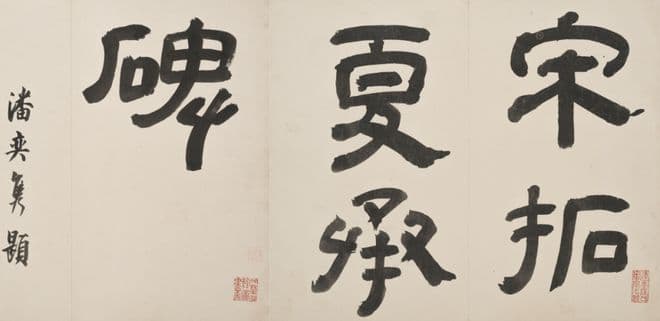 宋拓
夏承
碑
潘奕隽題